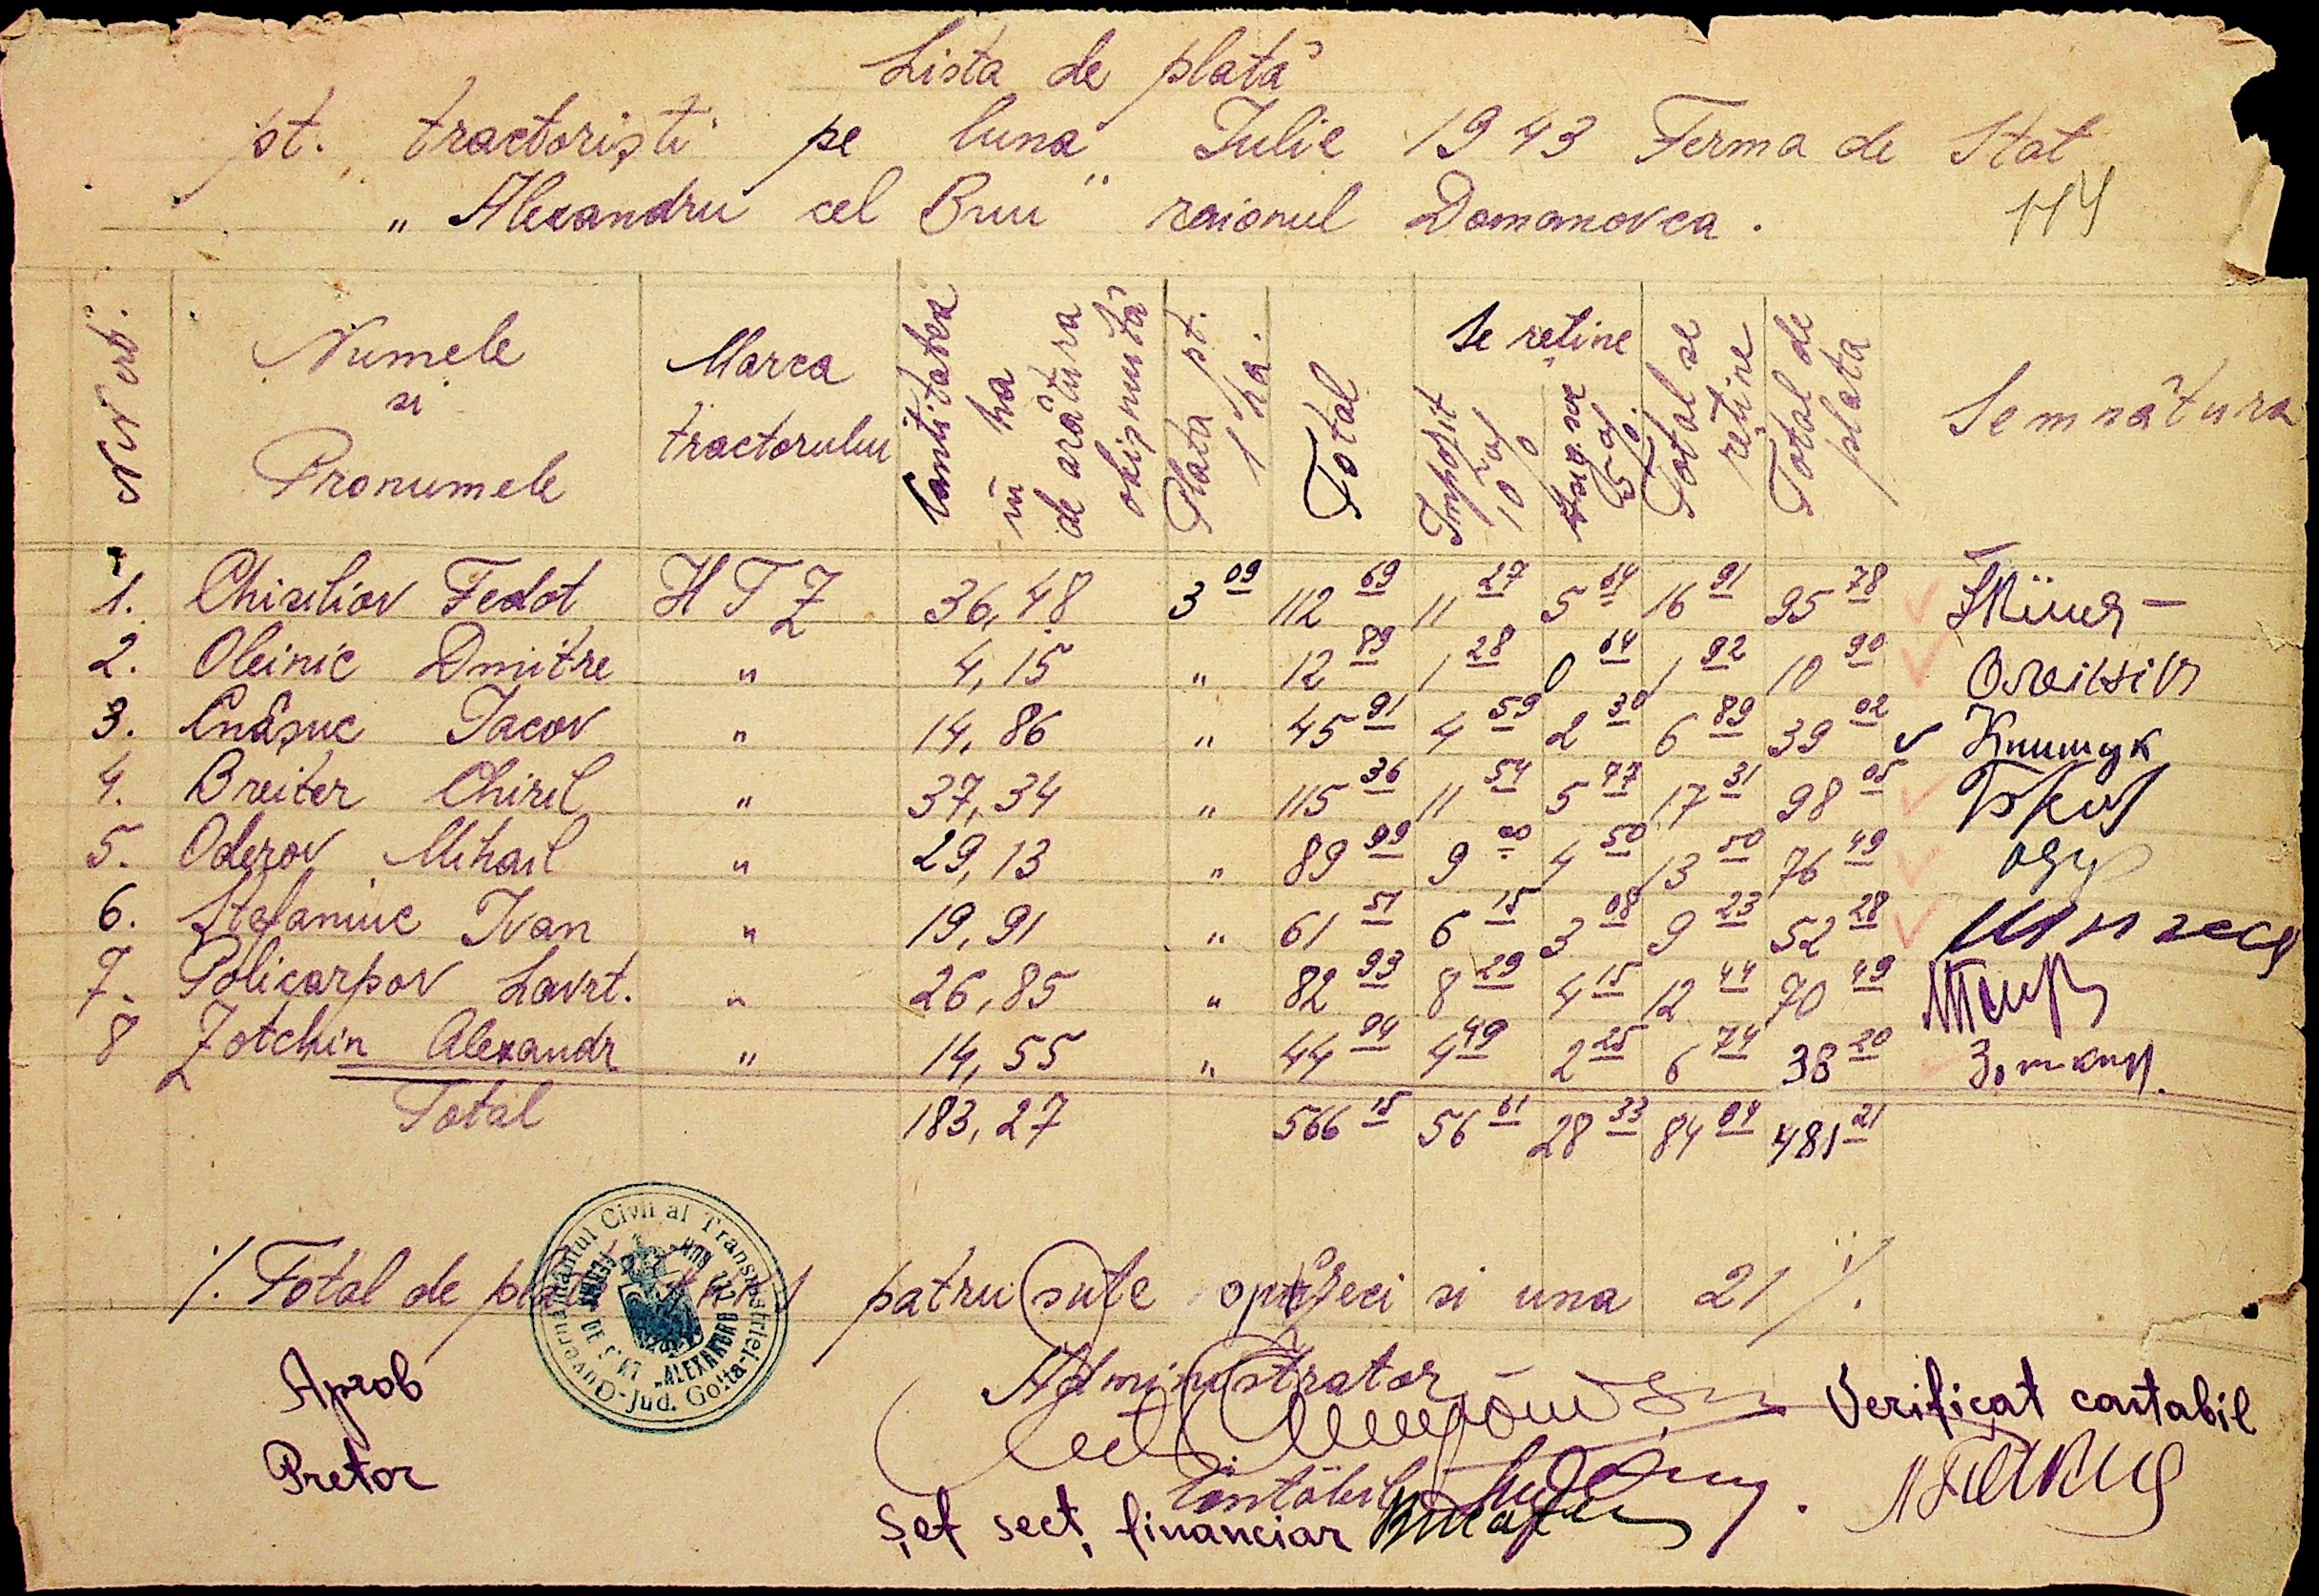 Lista de plată
pt. tractoriști pe luna Iulie 1943 Ferma de Stat
„Alexandru cel Bun" raionul Domanovca.
114
NN crt. | Numele si Pronumele | Marca tractorului | Cantitatea în ha de arătura obișnuită | Plata pt. 1 ha. | Total | Se reține | Impozit 10% | Asig. soc 5% | Total se reține | Total de plata | Semnătura
1. Chiseliov Fedot HTZ 36,48 3 09 112 69 11 27 5 64 16 91 95 78
2. Oleinic Dmitre " 4,15 " 12 89 1 28 0 64 1 92 10 90
3. Cnășuc Iacov " 14,86 " 45 91 4 59 2 30 6 89 39 02 Книшук
4. Breiter Chiril " 37,34 " 115 36 11 54 5 77 17 31 98 05
5. Oderov Mihail " 29,13 " 89 99 9 00 4 50 13 50 76 49
6. Stefaniuc Ivan " 19,91 " 61 51 6 15 3 08 9 23 52 28
7. Policarpov Lavrt. " 26,85 " 82 93 8 29 4 15 12 44 70 49
8 Zotchin Alexandr " 14,55 " 44 94 4 49 2 25 6 74 38 20
Total 183,27 566 15 56 61 28 33 84 94 481 21
Guvernământul Civil al Transnistriei-Jud. Golta
FERMA DE STAT „ALEXANDRU CEL BUN"
/. Total de plată patru sute optzeci si una 21 /.
Aprob
Pretor
Administrator
Contabil
Șef secț, financiar
Verificat contabil